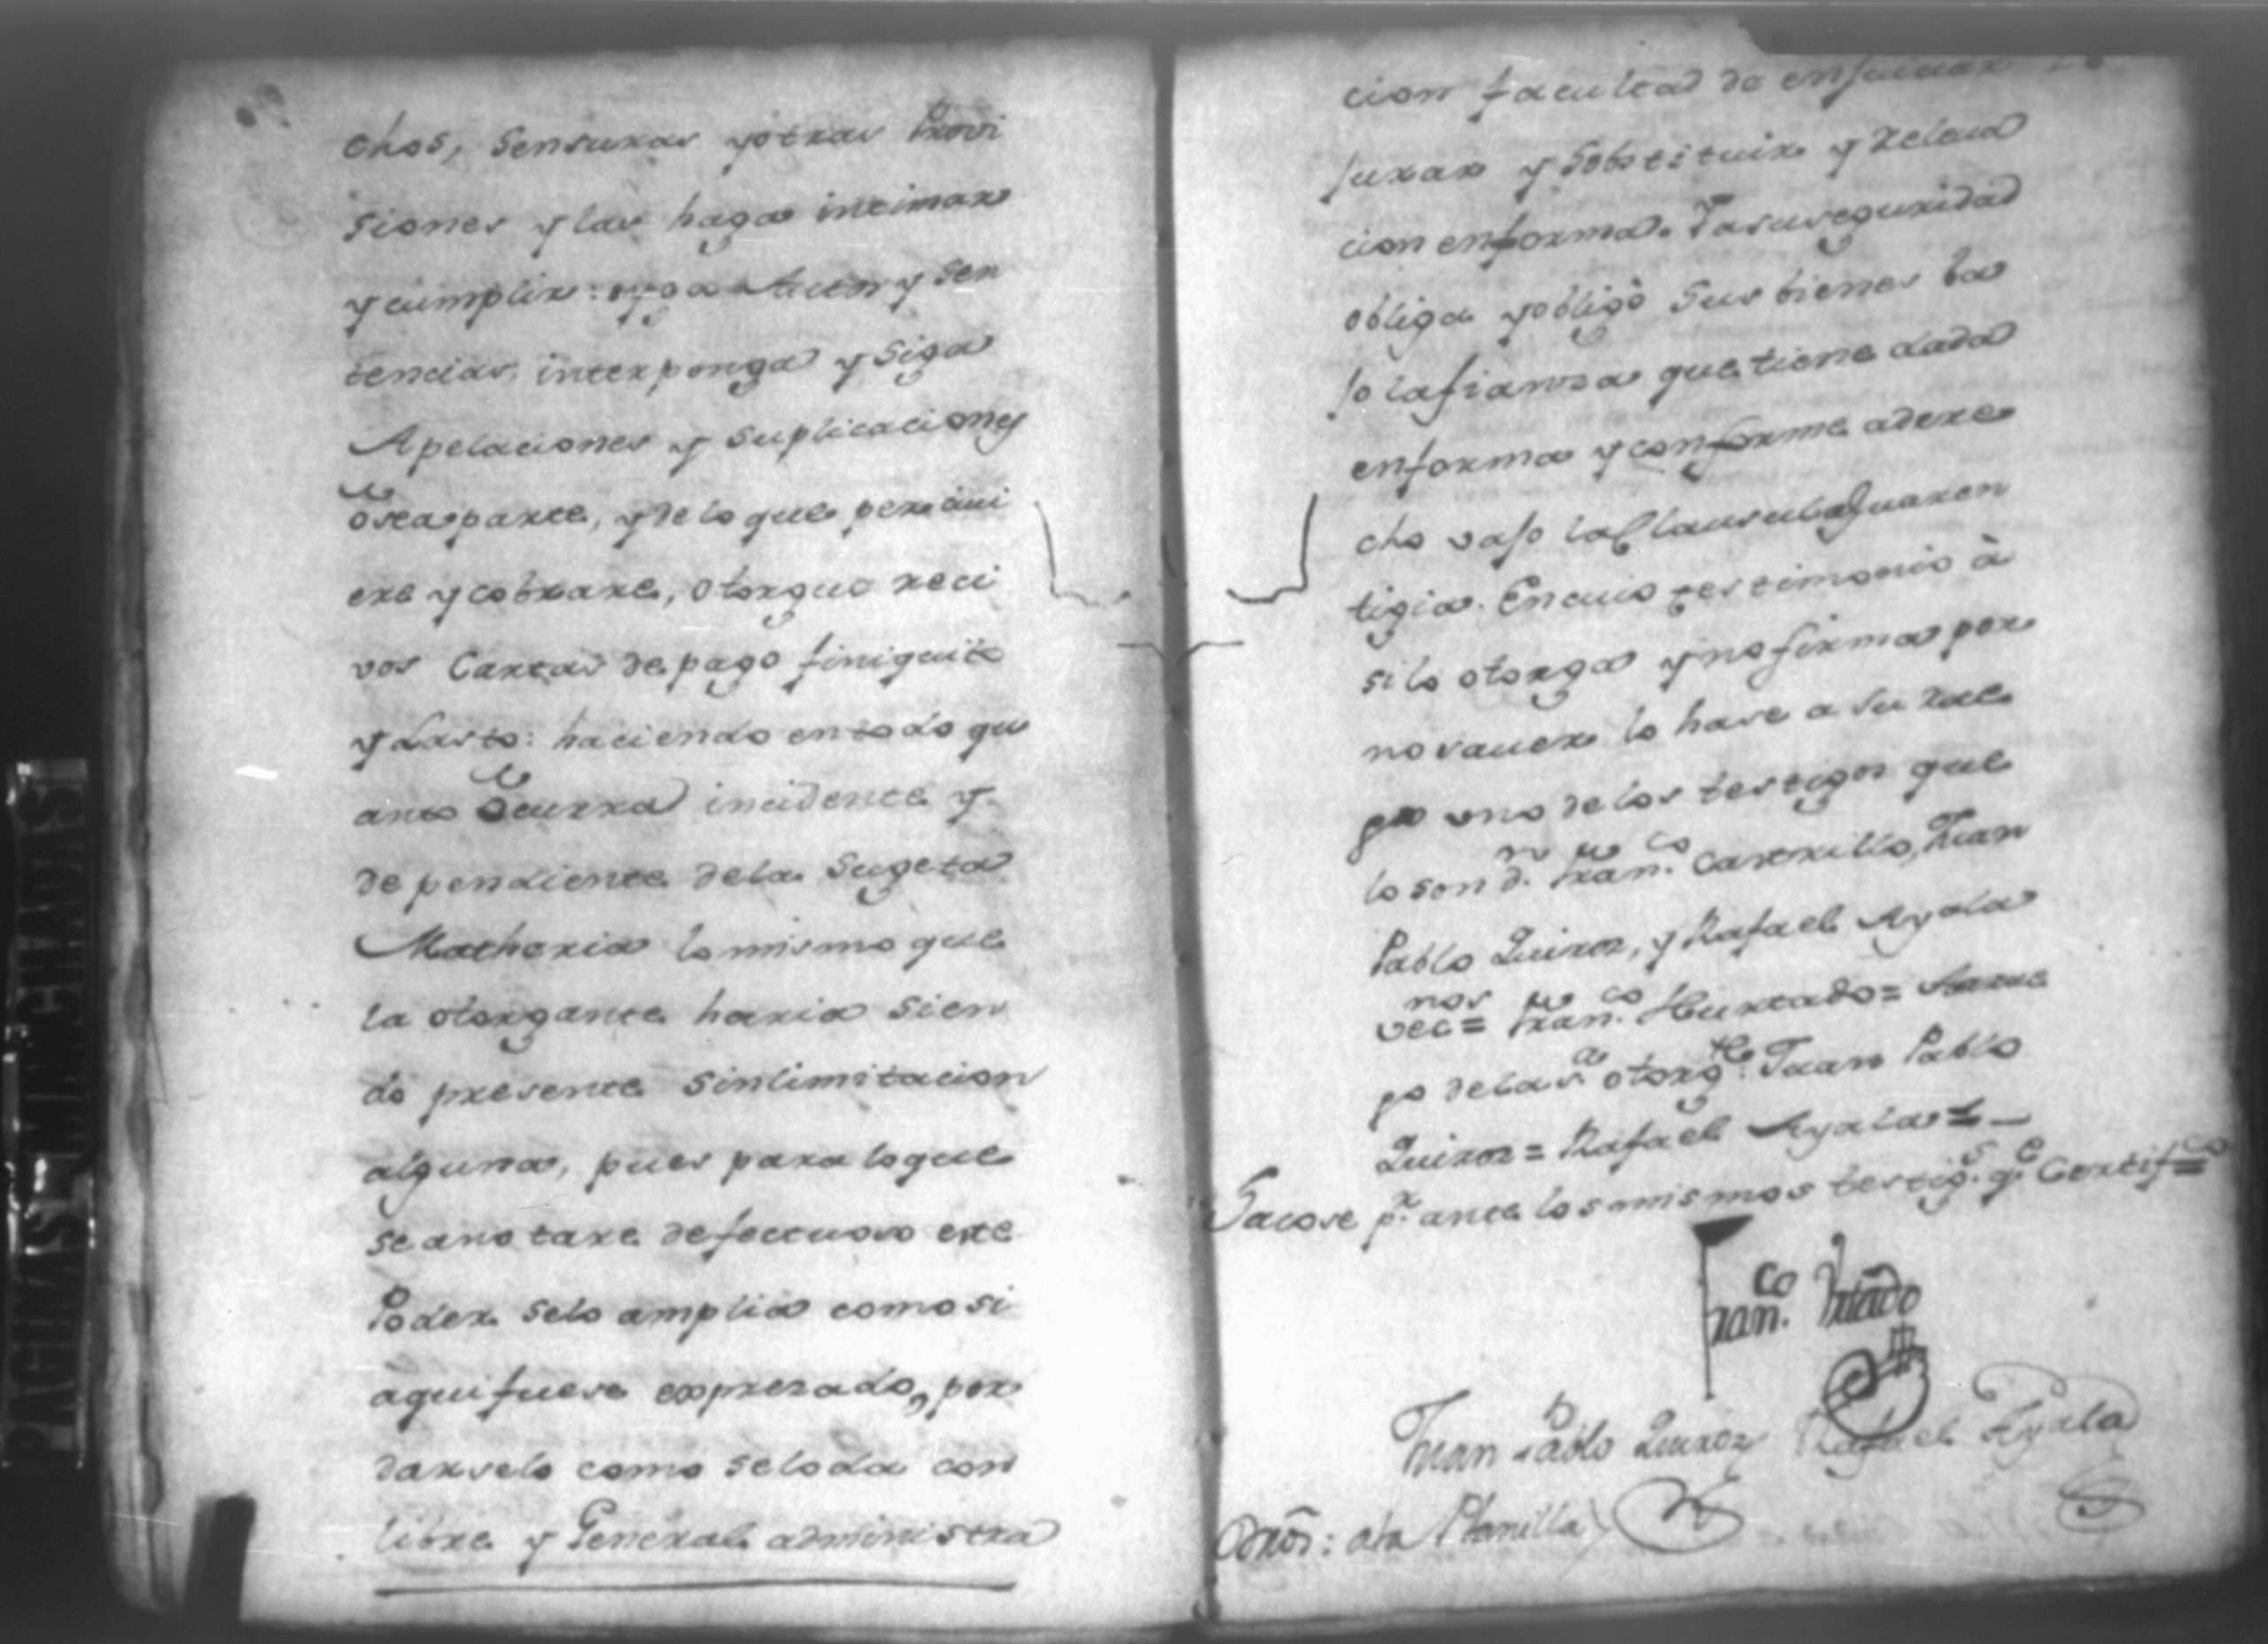 chos, Sensuras yotras Provi
siones y las haga intimar
y cumplir: oyga Autos y Sen
tencias, interponga y siga
Apelaciones y Suplicaciones
o sea parte, y de lo que perciui
ere y cobrare, otorgue reci
vos Cartas de pago finiquito
y Lasto: haciendo entodo qu
anto Ocurra incidente y
dependiente dela Sugeta
Matheria lo mismo que
la otorgante haria sien
do presente sinlimitacion
alguna, pues para loque
se anotare defectuoso este
Poder selo amplia como si
aqui fuese expresado, por
darselo como seloda con
libre y General administra
cion facultad de enjuiciar
jurar y Sobstituir y Releua
cion enforma. Ya su seguridad
obliga yobligò Sus bienes ba
jo lafianza que tiene dada
enforma y conforme adere
cho vajo la Clausula Guaren
tigia. En cuio testimonio à
si lo otorga y no firma por
no sauer lo hase a su rue
go uno de los testigos que
lo son d.n Fran.co Carrillo, Juan
Pablo Quiroz, y Rafael Ayala
vec.nos = Fran.co Hurtado = Arrue
go dela s.a otorg.te Juan Pablo
Quiroz = Rafael Ayala =
Sacose p.r ante los mismos testig.s q.e Certif.co =
Fran.co Hurtado
Juan Pablo Quiroz Rafael Ayala
Dros: ata Planilla
PAGINAS MANCHADAS